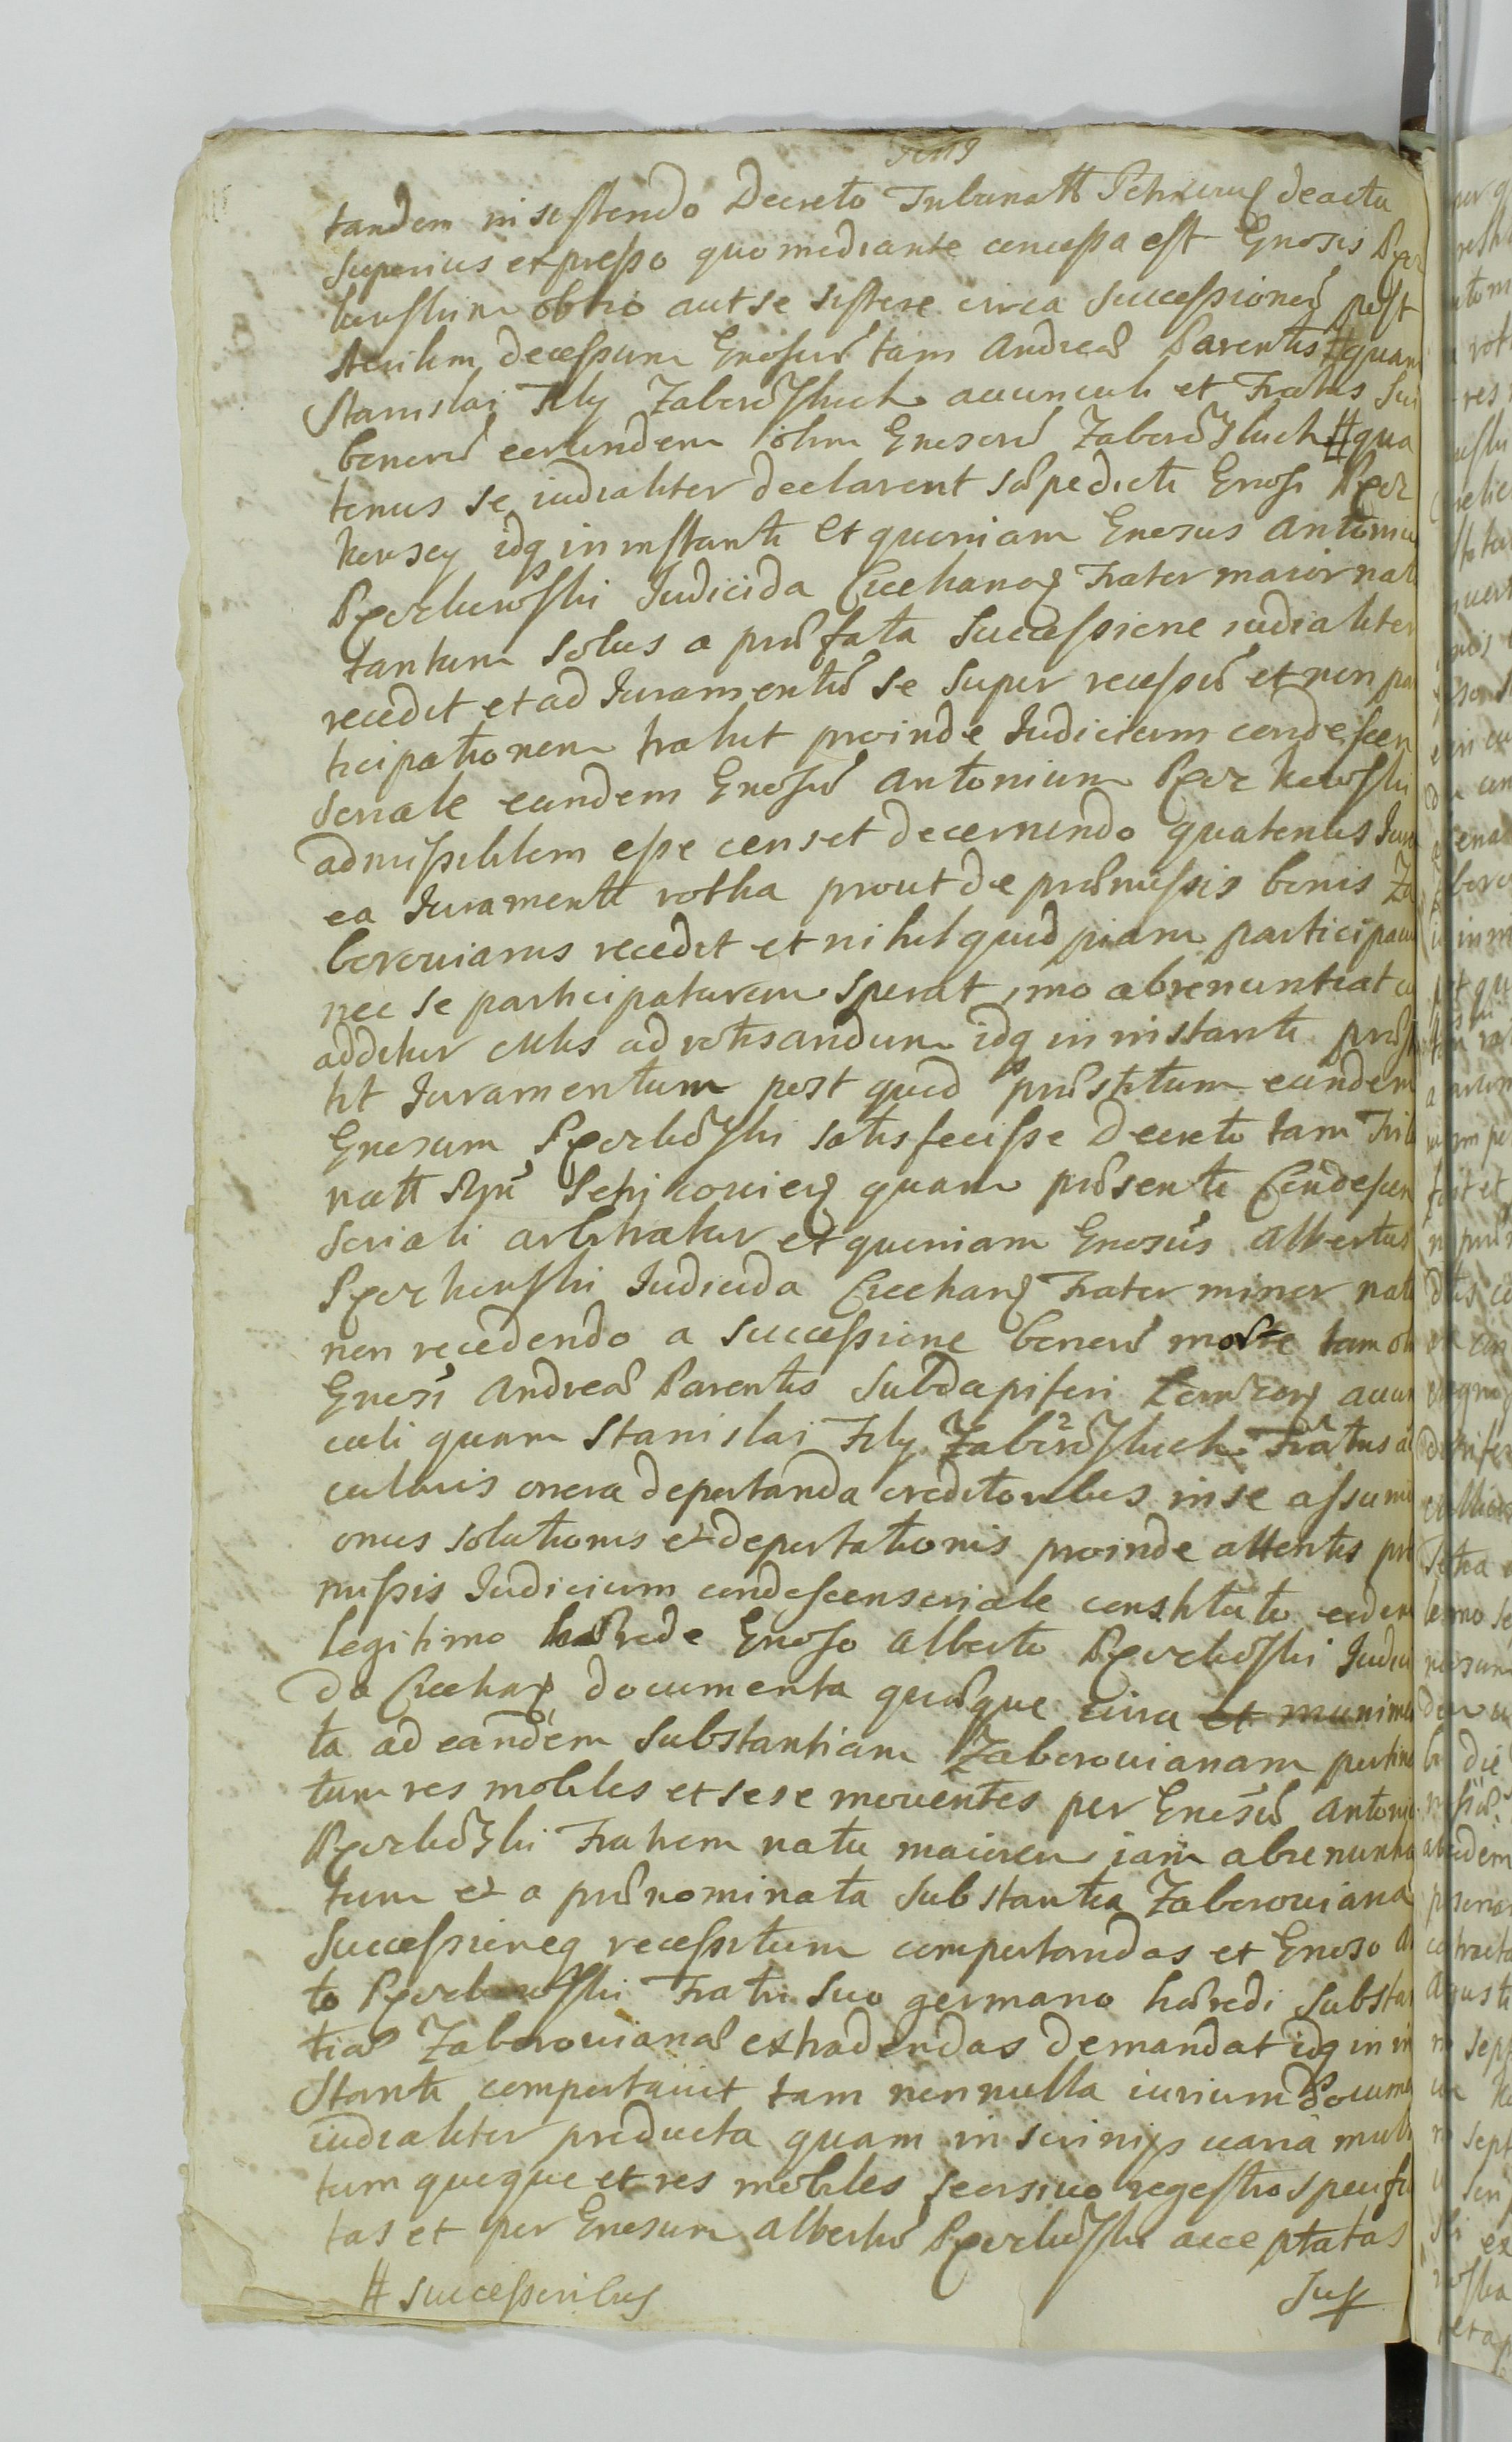 tandem insistendo Decreto Tribunatt de actu
superius expresso quo mediante concessa est Gnosis Pgor
kowskim obtio aut se sistere circa successionem post
sterilem decessum Gnosorum tam Andreae Parentis # quam
Stanislai Filij Zaborowskich avunculi et Fratris sui
bonorum eorundem olim Gnosorum Zaborowskich # qua
tenus se iudicialiter declarent saepedicti Gnosi Pgor
kowscy idq in instanti Et quoniam Gnosus Antonius
Pgorkowski Iudicida Ciechanog Frater maior natu
tantum solus a praefata Successione iudicialiter
recedit et ad Iuramentum se super recessum et non par
ticipationem trahit proinde Iudicium condescen
soriale eundem Gnosum Antonium Pgorkowski
admissibilem esse censet decernendo quatenus Iura
ea Iuramenti rotha prout de praemissis bonis Za
borovianis recedit et nihil quidpiam participavit
nec se participaturum sperat, imo abrenuntiat
additur ad rotisandum idq in instanti praes
tit Iuramentum post quod praestitum eundem
Gnosum Pgorkowski satisfecisse Decreto tam Trib
natt quam praesenti Condescen
soriali arbitratur et quoniam Gnosus Albertus
Pgorkowski Iudicida Ciechang Frater minor natu
non recedendo a successione bonorum morte tam olim
Gnosi Andreae Parentis Subdapiferi avun
culi quam Stanislai Filij Zaborowskich Fratris a
onera deportanda creditoribus in se assumit
onus solutionis et deportationis proinde attentis prae
missis Iudicium condescensoriale constituto eodem
legitimo haerede Gnoso Alberto Pgorkowski Iudici
da Ciechag documenta quaeque iura et munimen
ta ad eandem substantiam Zaborovianam pertinen
tum res mobiles et sese moventes per Gnosum Antoni
Pgorkowski Fratrem natu maiorem iam abrenuntia
tum et a praenominata substantia Zaboroviana
Successioneq recessitum comportandas et Gnoso Al
to Pgorkowski Fratri suo germano haeredi substan
tiae Zaborovianae extradendas demandat idq in in
stanti comportavit tam nonnulla iurium Docume
iudicialiter producta quam in scrinijs varia muni
tum quoque et res mobiles seorsivo regestro specifica
tas et per Gnosum Albertum Pgorkowski acceptatas
# Successoribus
Jus